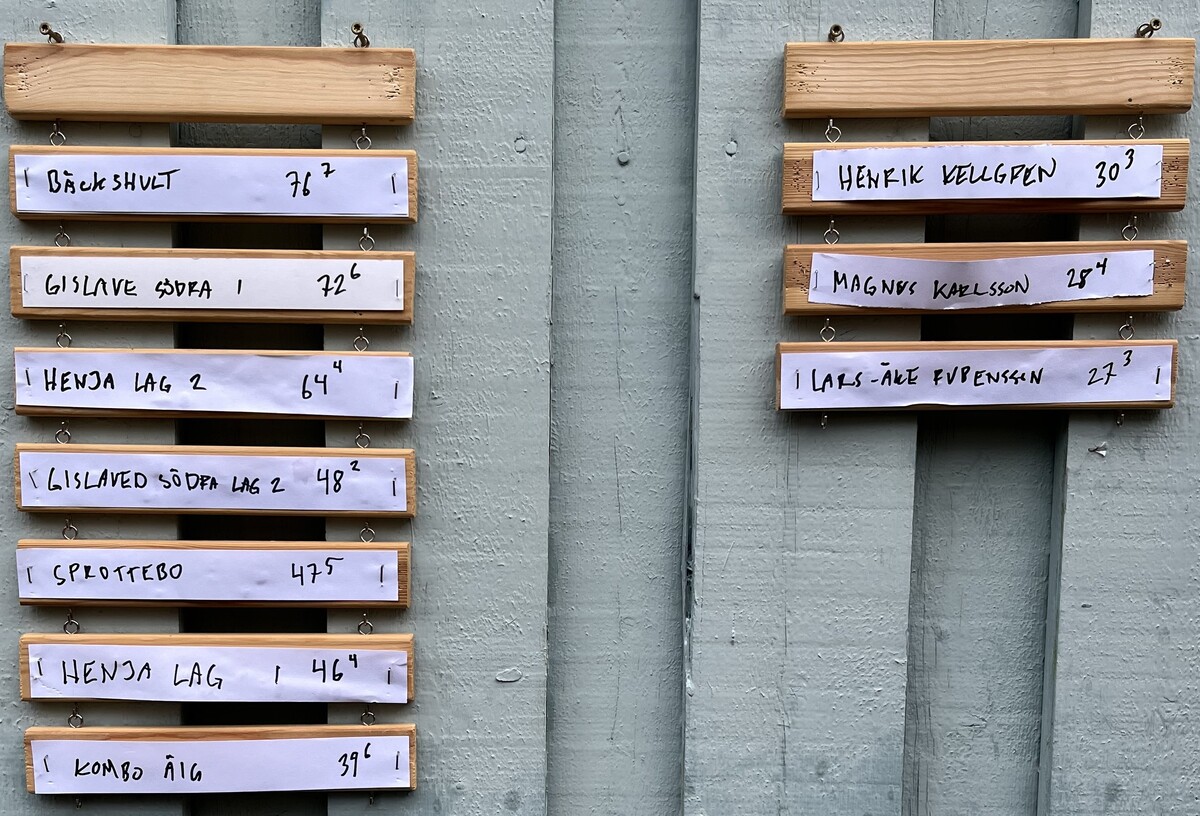 BÄCKSHULT 76²
GISLAVE SÖDRA 1 72⁶
HENJA LAG 2 64⁴
GISLAVED SÖDRA LAG 2 48²
SPROTTEBO 47⁵
HENJA LAG 1 46⁴
KOMBO ÄIG 39⁶
HENRIK KELLGREN 30³
MAGNUS KARLSSON 28⁴
LARS-ÅKE RUBENSSON 27³